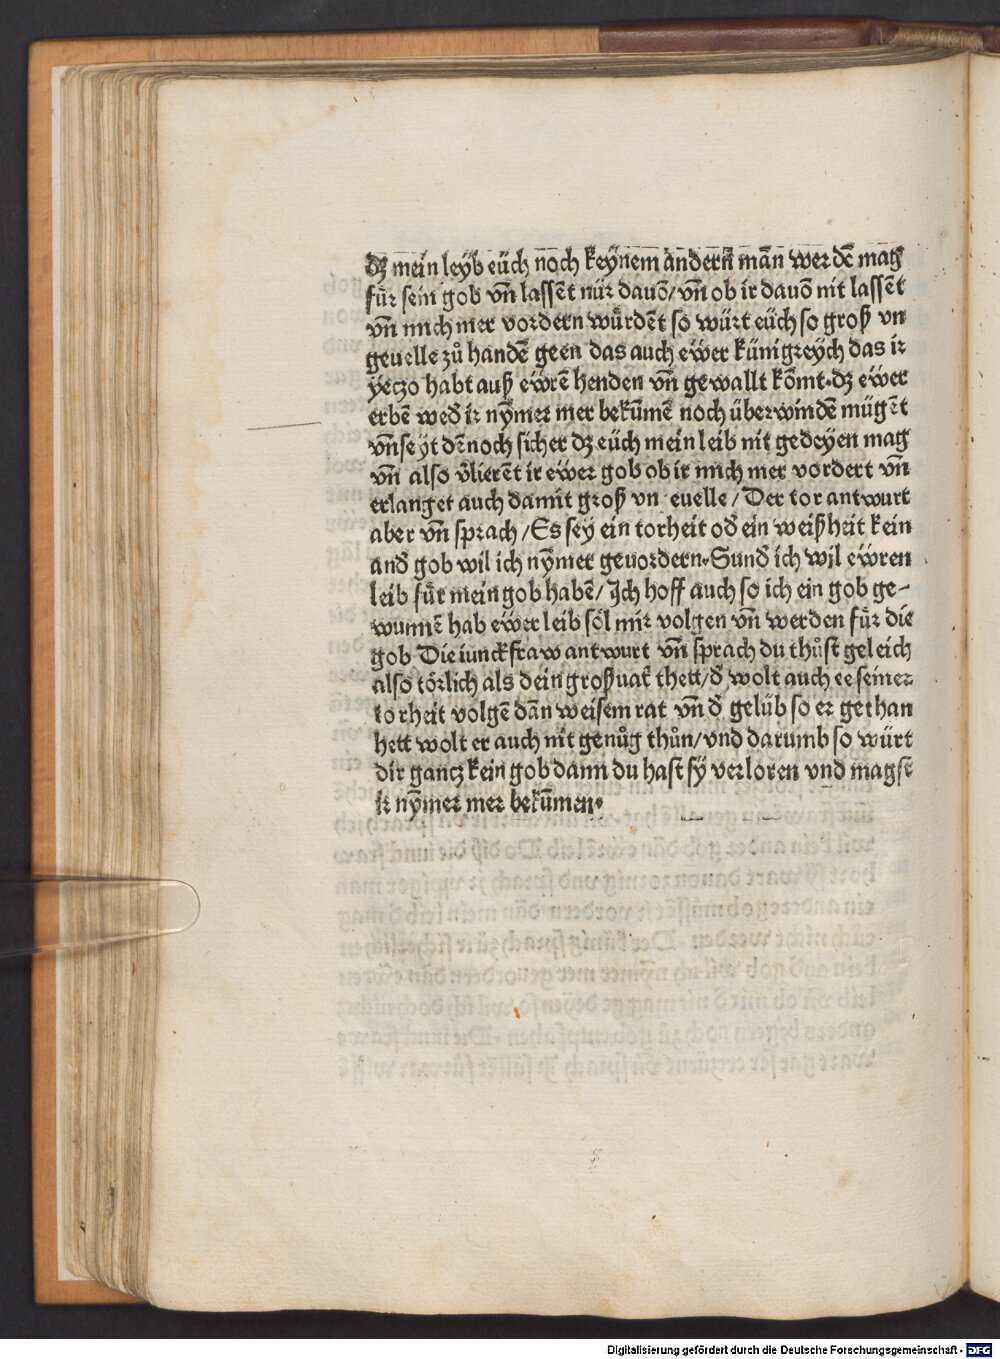 dʒ mein leyb eüch noch keynem andern man werdē mag
für sein gob vn̄ lassēt nür dauō/ vn̄ ob ir dauō nit lassēt
vn̄ mich mer vordern wůrdēt so würt eüch so groß vn
geuelle zů handē geen das auch ewer künigreych das ir
yeczo habt auß ewrē henden vn̄ gewallt kōmt·dʒ ewer
erbē wed̄ ir nȳmer mer bekūmē noch überwindē mügēt
vn̄ seyt dēnoch sicher dʒ eüch mein leib nit gedeyen mag
vn̄ also v̄lierēt ir ewer gob ob ir mich mer vordert vn̄
erlanget auch damit groß vn euelle/ Der tor antwurt
aber vn̄ sprach/ Es sey ein torheit od̄ ein weißheit kein
and̄ gob wil ich nȳmer geuordern·Sund̄ ich wil ewren
leib für mein gob habē/ Ich hoff auch so ich ein gob ge-
wunnē hab ewer leib söl mir volgen vn̄ werden für die
gob Die iunckfraw antwurt vn̄ sprach du thůst geleich
also törlich als dein großuat̄ thett/ d̄ wolt auch ee seiner
torheit volgē dān weisem rat vn̄ d̄ gelüb so er gethan
hett wolt er auch nit genůg thůn/ vnd darumb so würt
dir gancz kein gob dann du hast sy verloren vnd magst
ir nȳmer mer bekūmen·
Digitalisierung gefördert durch die Deutsche Forschungsgemeinschaft - DFG